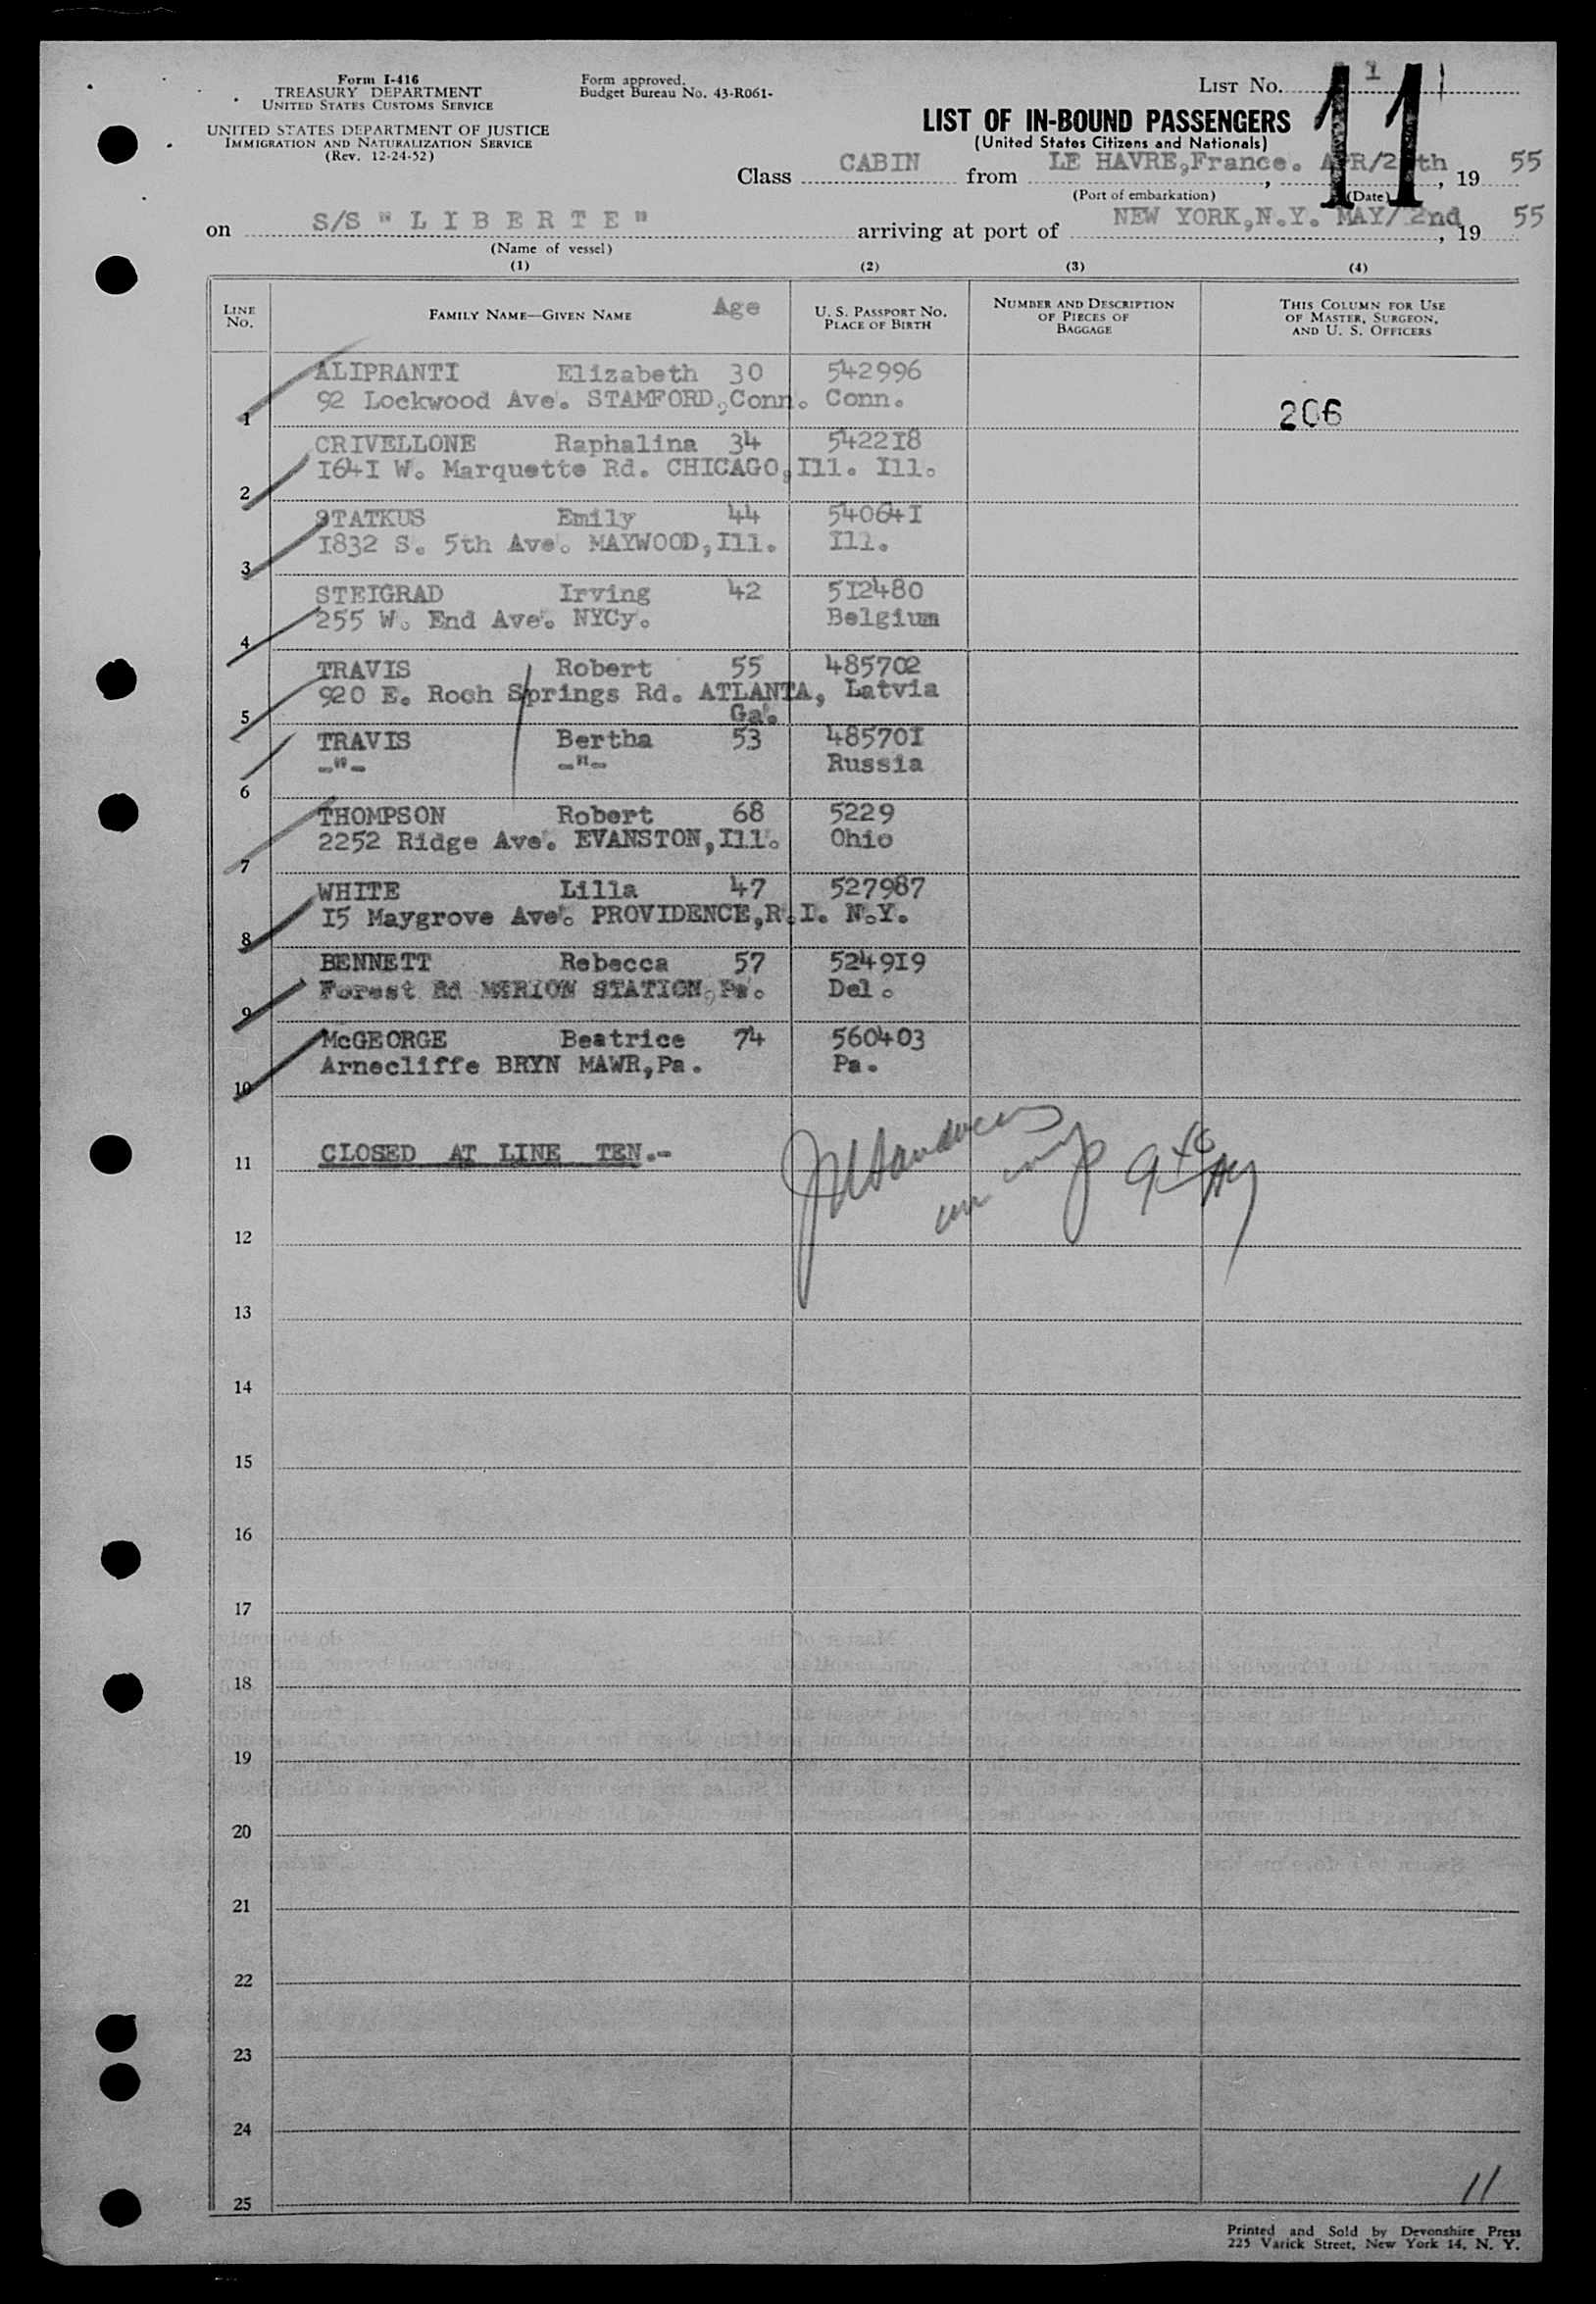 Form I-416
TREASURY DEPARTMENT
UNITED STATES CUSTOMS SERVICE
UNITED STATES DEPARTMENT OF JUSTICE
IMMIGRATION AND NATURALIZATION SERVICE
(Rev. 12-24-52)
Form approved.
Budget Bureau No. 43-R061-
LIST No. 1
11
LIST OF IN-BOUND PASSENGERS
(United States Citizens and Nationals)
Class CABIN from LE HAVRE,France. , 19 55
(Port of embarkation) (Date)
on S/S " L I B E R T E " arriving at port of NEW YORK,N.Y. MAY/ 2nd , 19 55
(Name of vessel)
(1) (2) (3) (4)
LINE No. FAMILY NAME—GIVEN NAME Age U. S. PASSPORT NO. PLACE OF BIRTH NUMBER AND DESCRIPTION OF PIECES OF BAGGAGE THIS COLUMN FOR USE OF MASTER, SURGEON, AND U. S. OFFICERS
ALIPRANTI Elizabeth 30 542996
1 92 Lockwood Ave. STAMFORD,Conn. Conn. 206
CRIVELLONE Raphalina 34 5422I8
2 I64I W. Marquette Rd. CHICAGO,Ill. Ill.
STATKUS Emily 44 54064I
3 I832 S. 5th Ave. MAYWOOD,Ill. Ill.
STEIGRAD Irving 42 5I2480
4 255 W. End Ave. NYCy. Belgium
TRAVIS Robert 55 485702
5 920 E. Roch Springs Rd. ATLANTA, Latvia
Ga.
TRAVIS Bertha 53 48570I
6 -"- -"- Russia
THOMPSON Robert 68 5229
7 2252 Ridge Ave. EVANSTON,Ill. Ohio
WHITE Lilla 47 527987
8 I5 Maygrove Ave. PROVIDENCE,R.I. N.Y.
BENNETT Rebecca 57 5249I9
9 Forest Rd MERION STATION,Pa. Del.
McGEORGE Beatrice 74 560403
10 Arnecliffe BRYN MAWR,Pa. Pa.
11 CLOSED AT LINE TEN.-
12
13
14
15
16
17
18
19
20
21
22
23
24
25
11
Printed and Sold by Devonshire Press
225 Varick Street, New York 14, N. Y.